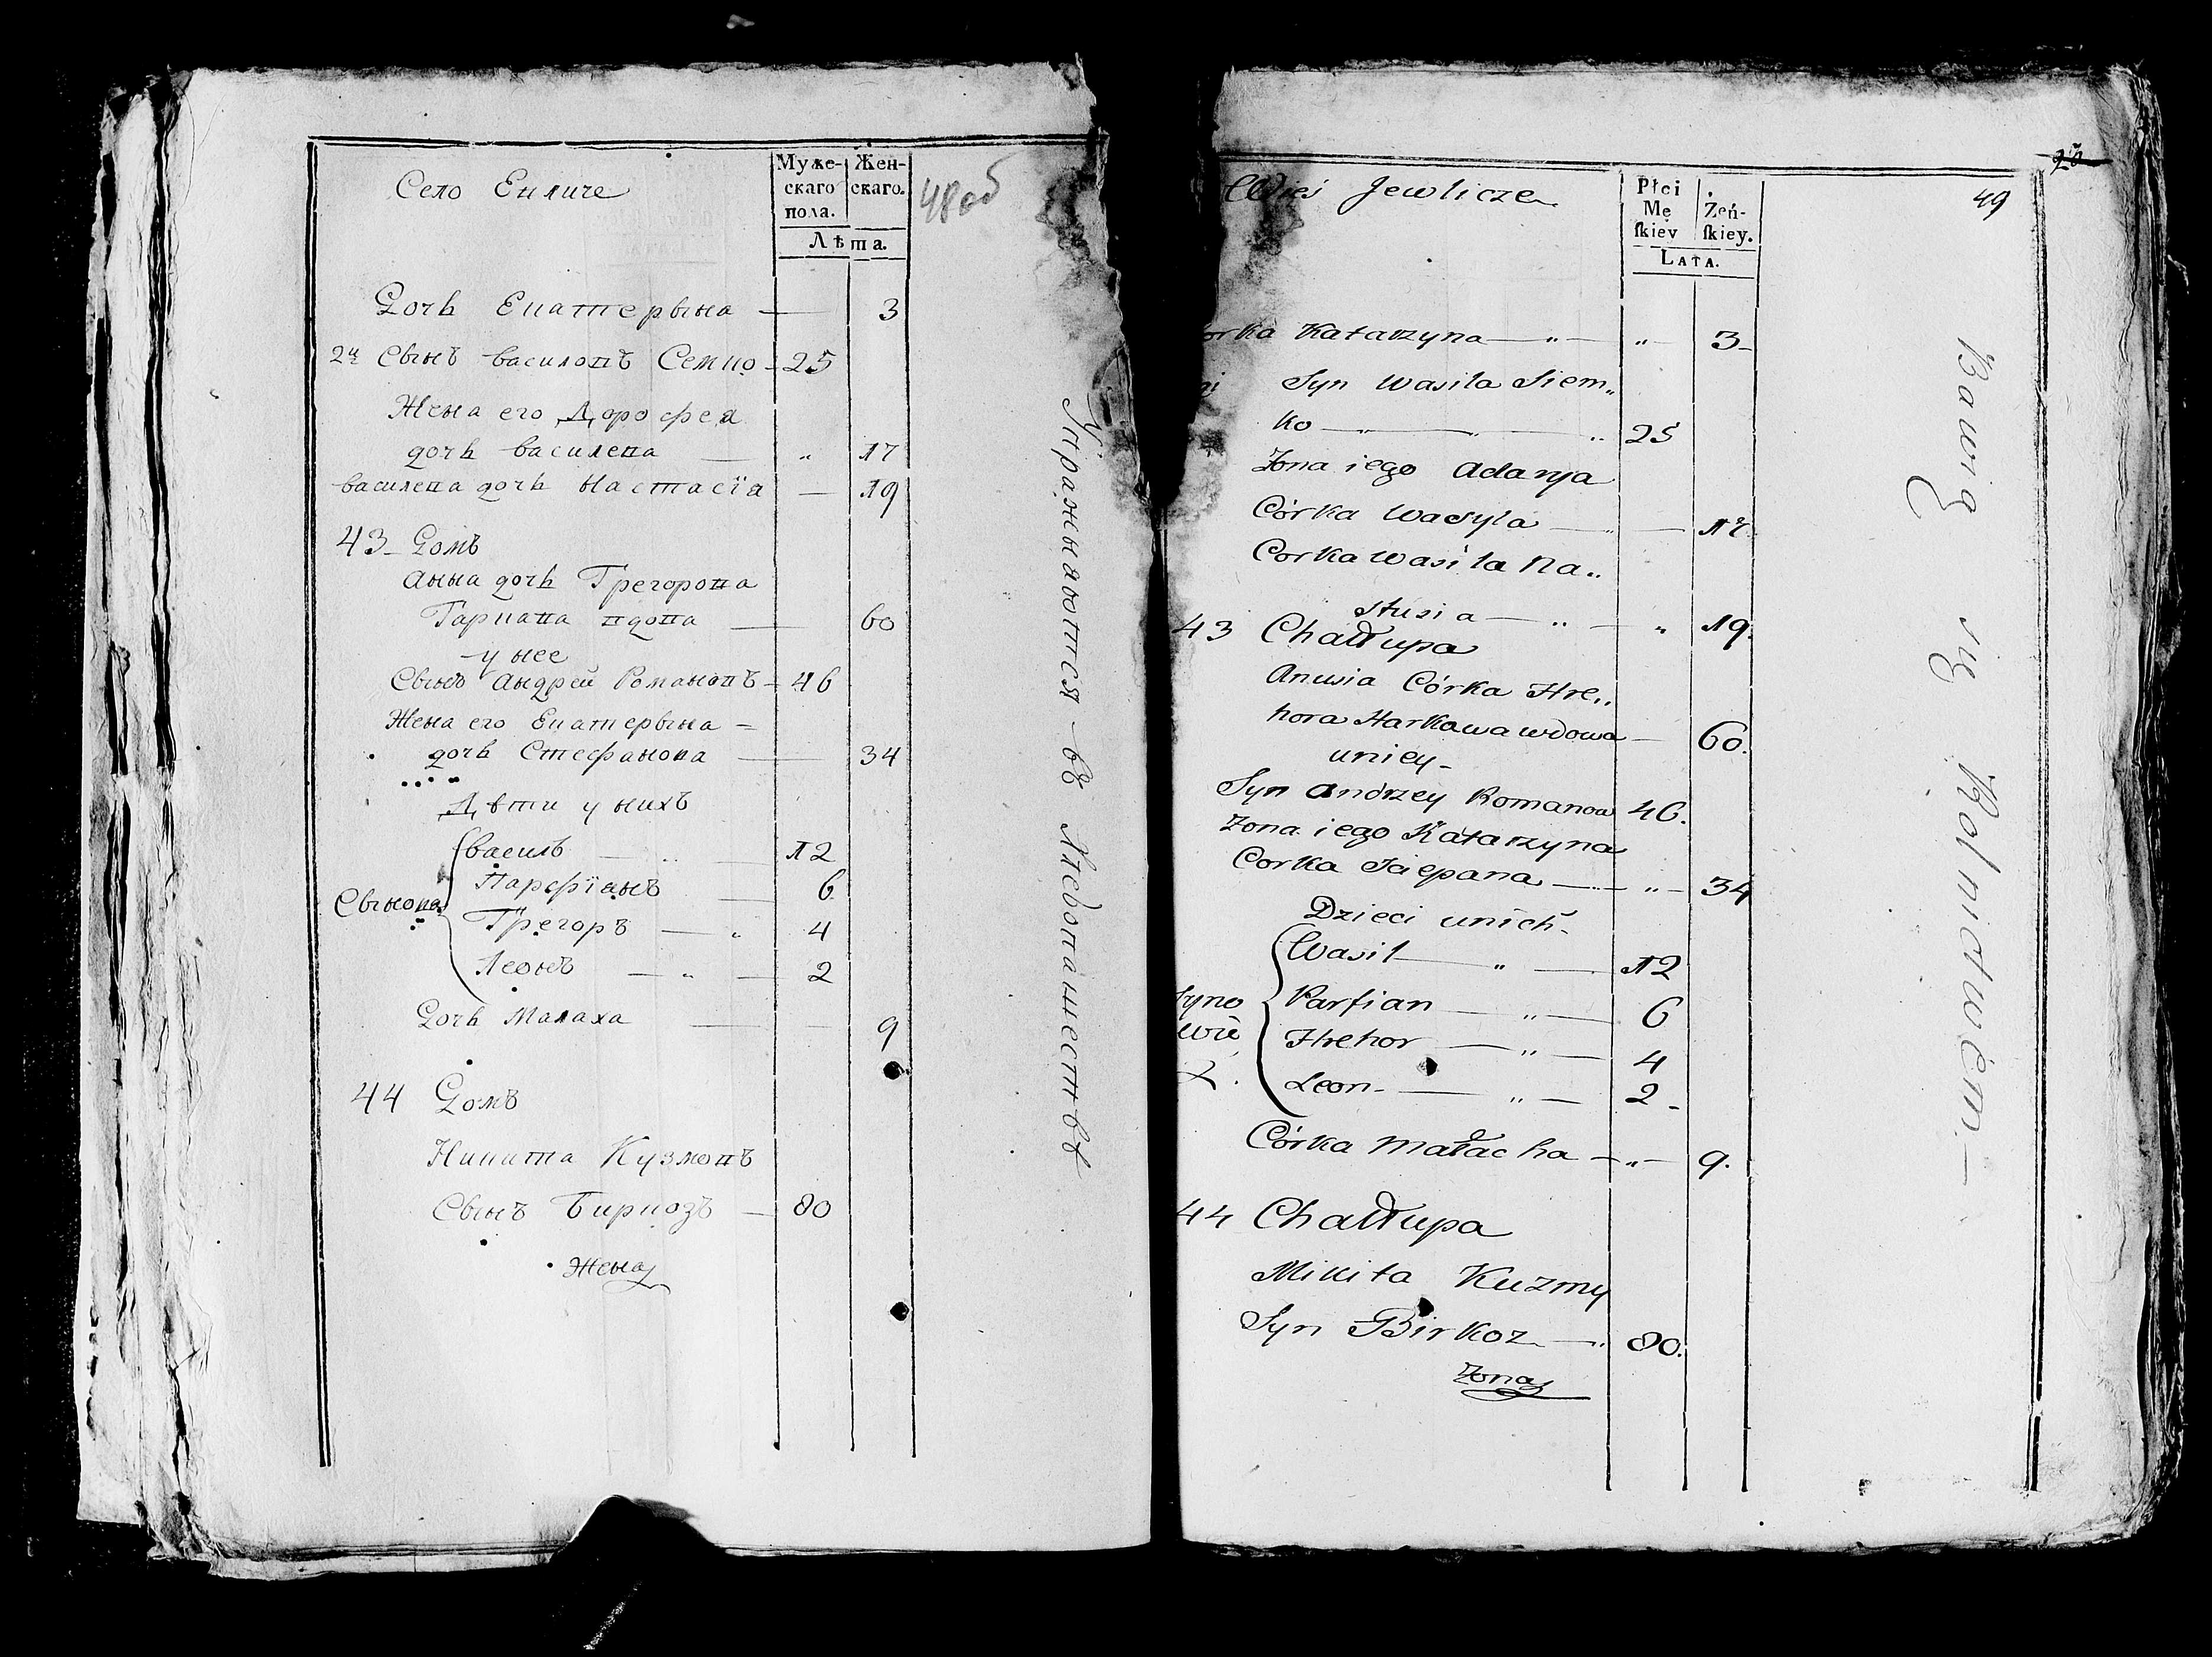 Село Евличе
Муже-
скаго
пола.
Жен-
скаго.
Лѣта.
48об
Дочь Екатерына — 3
2й Сынъ василовъ Семко — 25
Жена его Дорофеа
дочь василева — „ 17
василева дочь Настасїа — 19
43 — Домъ
Анна дочь Грегорова
Гаркава вдова — 60
у нее
Сынъ Андрей Романовъ — 46
Жена его Екатерына =
дочь Стефанова — 34
Дѣти у нихъ
Сынова
василь — „ — 12
Парфїанъ — 6
Грегоръ — „ 4
Леонъ — „ — 2
Дочь Малаха — 9
44 Домъ
Никита Кузмовъ
Сынъ Биркозъ — 80
Жена
Упражняются въ хлебопашествѣ
Wieś Jewlicze
Płci
Mę
skiey
Żeń-
skiey.
LATA.
49
Corka Katarzyna — „ — „ 3 -
Syn Wasila Siem„
ko — „ — „ 25
Żona iego Adarya
Córka Wasyla — „ — 17
Corka Wasila Na„
stusia — „ — „ 19.
43 Chałłupa
Anusia Córka Hre„
hora Harkawa wdowa — 60.
u niey -
Syn Andrzey Romanow 46.
Żona iego Katarzyna
Corka Sciepana — „ — 34
Dzieci u nich -
Syno
wie
Wasil — „ — 12
Parfian — „ — 6
Hrehor — „ — 4
Leon - — „ — 2 -
Córka Małacha — „ — 9.
44 Chałłupa
Mikita Kuzmy
Syn Birkoz — „ 80.
Żona
Bawią się Rolnictwem —